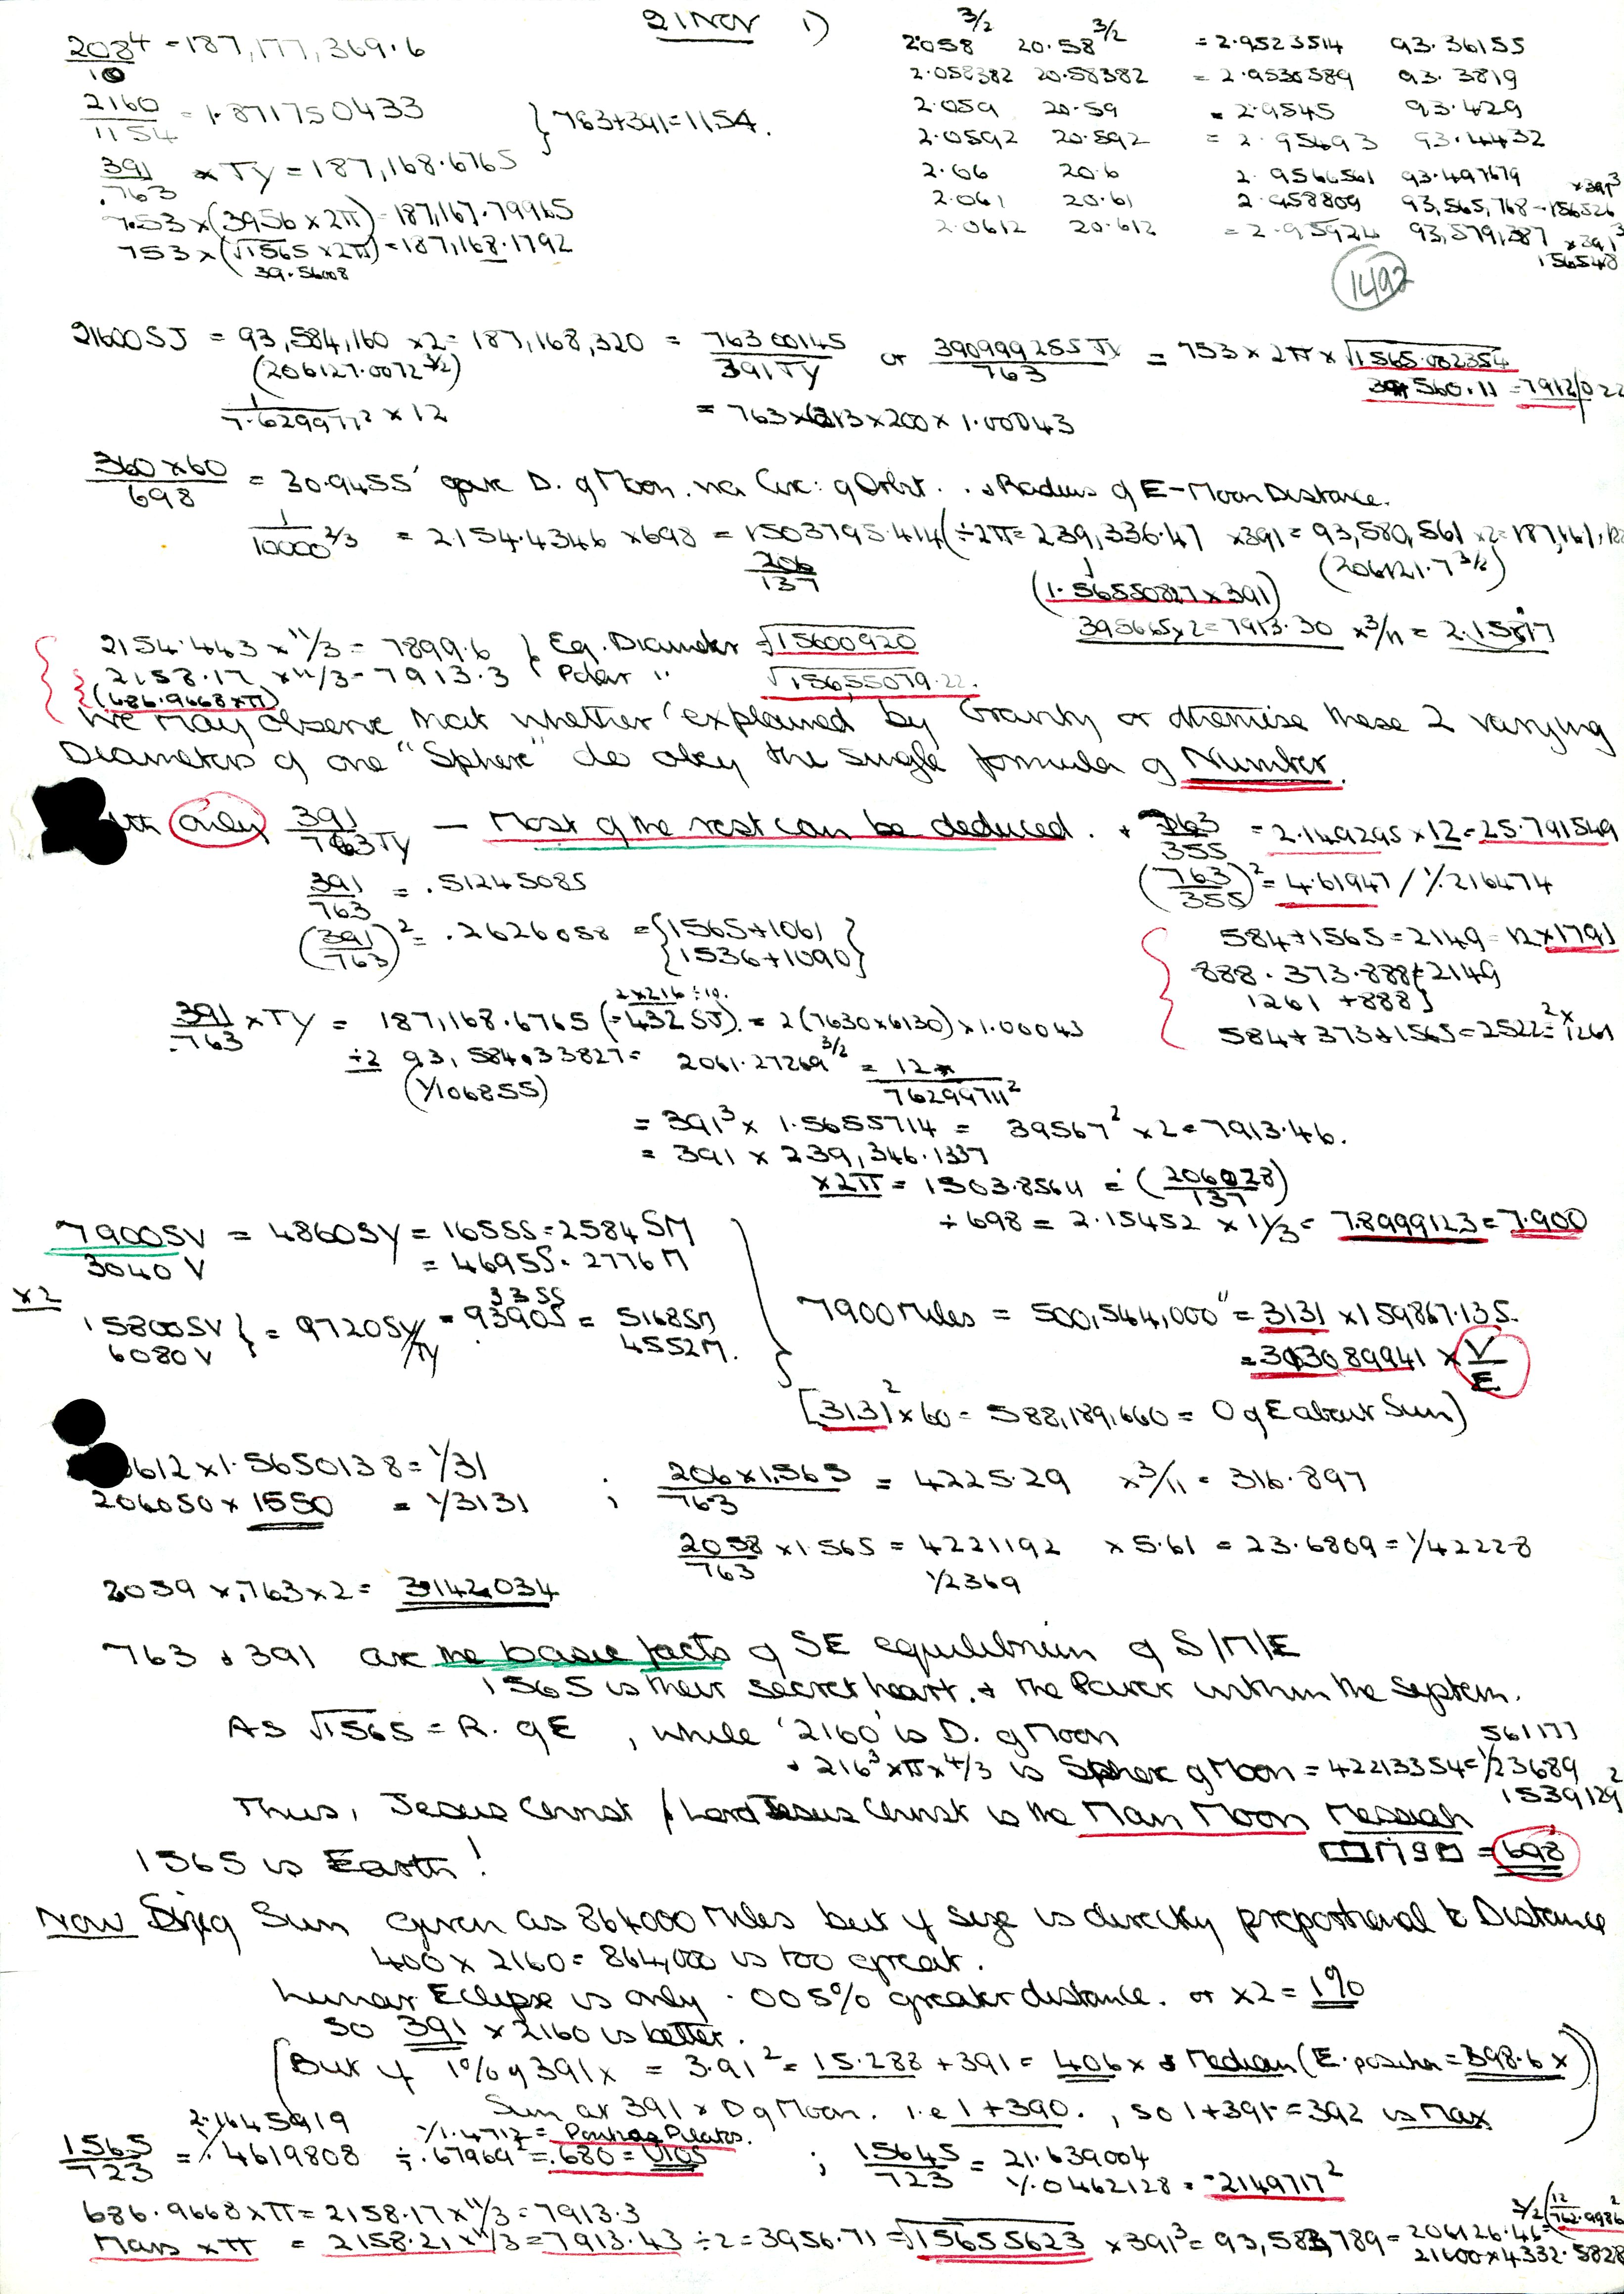 21 Nov 1)
208⁴ = 187,177,369.6
10
2160 = 1.871750433
1154
} 763+391 = 1154.
391 × TY = 187,168.6765
.763
7.53 × (3956 × 2π) = 187,167.79965
753 × (√1565 × 2π) = 187,168.1792
39.56008
2.058 3/2 20.58 3/2 = 2.9523514 93.36155
2.058382 20.58382 = 2.9530589 93.3819
2.059 20.59 = 2.9545 93.429
2.0592 20.592 = 2.95493 93.4432
2.06 20.6 2.9566561 93.497679
2.061 20.61 2.958809 93,565,768 = 156526 × 391³
2.0612 20.612 = 2.95924 93,579,387 × 391³
156548
1492
21600 SJ = 93,584,160 ×2 = 187,168,320 = 763 00145 or 390999255 TY = 753 × 2π × √1565.082354
391 TY 763
(206127.0072 3/2) 39 560.11 = 7912/022
1 × 12 = 763 × 613 × 200 × 1.00043
7.629977²
360 × 60 = 30.9455' gave D. of Moon. via Circ: of Orbit. & Radius of E-Moon Distance.
698
1 2/3 = 2154.4346 × 698 = 1503795.414 (÷2π = 239,336.47 × 391 = 93,580,561 ×2 = 187,161,122
10000
206
137
(206121.7 3/2)
(1.56550827 × 391)
395665 × 2 = 7913.30 × 3/11 = 2.15817
2154.443 × 11/3 = 7899.6 } Eq. Diameter = √15600920
2158.17 × 11/3 = 7913.3 { Polar " √15655079.22.
(686.9668 × π)
We may observe that whether explained by Gravity or otherwise these 2 varying
Diameters of one "Sphere" do obey the single formula of Number.
with only 391 — Most of the rest can be deduced. + 763 = 2.149295 × 12 = 25.791549
763 TY 355
391 = .51245085
763
(763)² = 4.61947 / ⅟.216474
(355)
(391)² = .2626058 = {1565+1061}
(763) {1536+1090}
584+1565 = 2149 = 12 × 1791
888. 373. 888 = 2149
1261 + 888 }
584 + 373 + 1565 = 2522 = 2 × 1261
391 × TY = 187,168.6765 (= 432 SJ) = 2(7630 × 6130) × 1.00043
.763
2 × 216 ÷ 10.
÷2 93,584.33827 = 2061.27269 3/2 = 12 ×
(1/106855) 76299711²
= 391³ × 1.5655714 = 39567² × 2 = 7913.46.
= 391 × 239,346.1337
×2π = 1503.8564 = (206028)
137
÷ 698 = 2.15452 × 11/3 = 7.8999123 = 7.900
7900 SV = 4860 SY = 165SS = 2584 SM
3040 V = 4695S. 2776 M
×2
15800 SV } = 9720 SY/TY = 9390S = 5168 SM
33SS
6080 V 4552 M.
7900 Miles = 500,544,000" = 3131 × 159867.135.
= 3013089941 × V
E
[3131² × 60 = 588,189,660 = O of E about Sun]
0612 × 1.5650138 = 1/31
206050 × 1550 = 1/3131
; 206 × 1.565 = 4225.29 × 3/11 = 316.897
763
2058 × 1.565 = 4221192 × 5.61 = 23.6809 = 1/42228
763
1/2369
2059 × .763 × 2 = 3.142.034
763 & 391 are the basic facts of SE equilibrium of S/M/E
1565 is their secret heart. & the Power within the System.
As √1565 = R. of E, while '2160' is D. of Moon
561177
& 216³ × π × 4/3 is Sphere of Moon = 42213354 = 1/23689
1539129²
Thus, Jesus Christ / Lord Jesus Christ is the Man Moon Messiah
= 698
1565 is Earth!
Now Sun given as 864000 Miles but if size is directly proportional to Distance
400 × 2160 = 864,000 is too great.
Lunar Eclipse is only .005% greater distance. or ×2 = 1%
so 391 × 2160 is better.
(But if 1% of 391 × = 3.91² = 15.288 + 391 = 406 × & Median (E. position = 398.6 ×))
Sun at 391 × D of Moon. i.e 1+390., so 1+391 = 392 is Max
2.1645919
1565 = ⅟.4619808 ÷ .67969² = .680 = UIOS
723
1/1.4712 = Pontias Pilatos.
; 15645 = 21.639004
723
⅟.0462128 = .2149717²
686.9668 × π = 2158.17 × 11/3 = 7913.3
Mars × π = 2158.21 × 11/3 = 7913.43 ÷ 2 = 3956.71 = √15655623 × 391³ = 93,583,789 = 206126.46 = 3/2 (12
762.9986²
21600 × 4332.5828